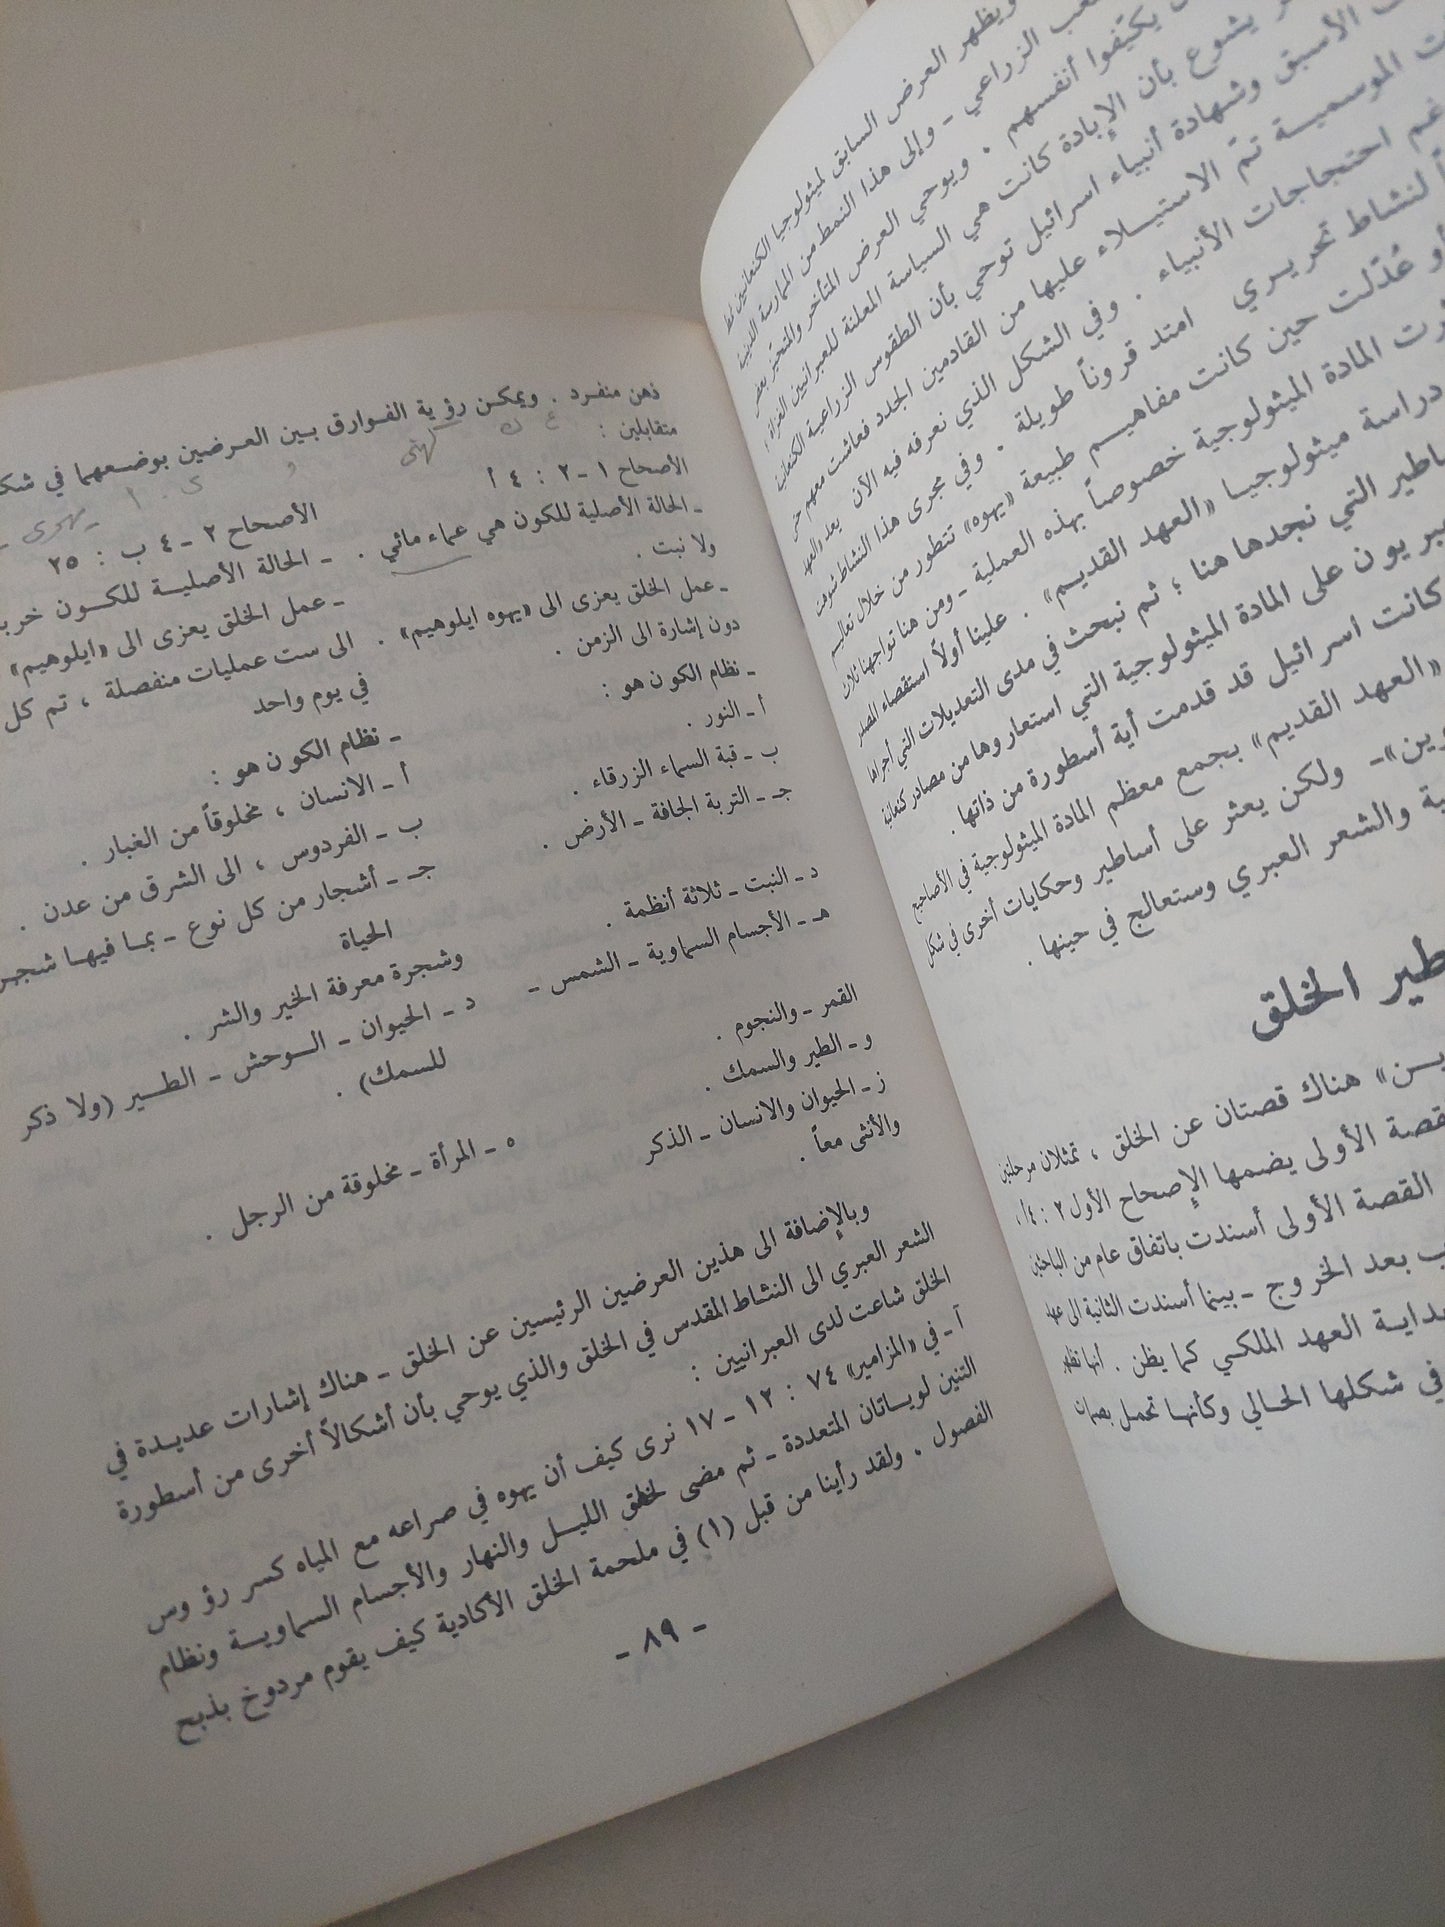 ويظهر العرض السابق لميثولوجيا الكنعانيين
عب الزراعي - وإلى هذا النمط من الممارسة الدينية
يكيفوا أنفسهم . ويوحي العرض المتأخر والمتحيّز
يشوع بأن الإبادة كانت هي السياسة المعلنة للعبرانيين الغزاة ؛
الأسبق وشهادة أنبياء اسرائيل توحي بأن الطقوس الزراعية
ت الموسمية تمّ الاستيلاء عليها من القادمين الجدد فعاشت معهم
غم احتجاجات الأنبياء . وفي الشكل الذي نعرفه فيه الآن يعد
لنشاط تحريري امتد قروناً طويلة . وفي مجرى هذا النشاط
أو عُدّلت حين كانت مفاهيم طبيعة «يهوه» تتطور من خلال
رت المادة الميثولوجية خصوصاً بهذه العملية - ومن هنا تواجهنا ثلاث
دراسة ميثولوجيا «العهد القديم» . علينا أولاً استقصاء
ساطير التي نجدها هنا ؛ ثم نبحث في مدى التعديلات التي أجراها
بريون على المادة الميثولوجية التي استعاروها من مصادر كنعانية
كانت اسرائيل قد قدمت أية أسطورة من ذاتها .
«العهد القديم» بجمع معظم المادة الميثولوجية في الأصاحيح
وين»- ولكن يعثر على أساطير وحكايات أخرى في شكل
ية والشعر العبري وستعالج في حينها .
طير الخلق
ين» هناك قصتان عن الخلق ، تمثلان مرحلتين
قصة الأولى يضمها الإصحاح الأول ٢ : ٤أ ،
القصة الأولى أسندت باتفاق عام من الباحثين
ب بعد الخروج - بينما أسندت الثانية الى عهد
داية العهد الملكي كما يظن . انها تظهر
في شكلها الحالي وكأنها تحمل بصمات
ذهن منفرد . ويمكن رؤية الفوارق بين العرضين بوضعهما في
متقابلين :
الأصحاح ١ - ٢ : ٤ أ
- الحالة الأصلية للكون هي عماء مائي .
ولا نبت .
- عمل الخلق يعزى الى «يهوه ايلوهيم» .
دون إشارة الى الزمن .
- نظام الكون هو :
أ - النور .
ب - قبة السماء الزرقاء .
جـ - التربة الجافة - الأرض .
د - النبت - ثلاثة أنظمة .
هـ - الأجسام السماوية - الشمس -
القمر - والنجوم .
و - الطير والسمك .
ز - الحيوان والانسان - الذكر
والأنثى معاً .
الأصحاح ٢ - ٤ ب : ٢٥
- الحالة الأصلية للكون
- عمل الخلق يعزى الى «ايلوهيم»
الى ست عمليات منفصلة ، تم كل
في يوم واحد
- نظام الكون هو :
أ - الانسان ، مخلوقاً من الغبار .
ب - الفردوس ، الى الشرق من عدن .
جـ - أشجار من كل نوع - بما فيها
الحياة
وشجرة معرفة الخير والشر .
د - الحيوان - الوحش - الطير (ولا ذكر
للسمك) .
ه - المرأة - مخلوقة من الرجل .
وبالإضافة الى هذين العرضين الرئيسين عن الخلق - هناك إشارات عديدة في
الشعر العبري الى النشاط المقدس في الخلق والذي يوحي بأن أشكالاً أخرى من أسطورة
الخلق شاعت لدى العبرانيين :
آ - في «المزامير» ٧٤ : ١٢ - ١٧ نرى كيف أن يهوه في صراعه مع المياه كسر رؤوس
التنين لوياثان المتعددة - ثم مضى لخلق الليل والنهار والأجسام السماوية ونظام
الفصول . ولقد رأينا من قبل (١) في ملحمة الخلق الأكادية كيف يقوم مردوخ بذبح
- ٨٩ -